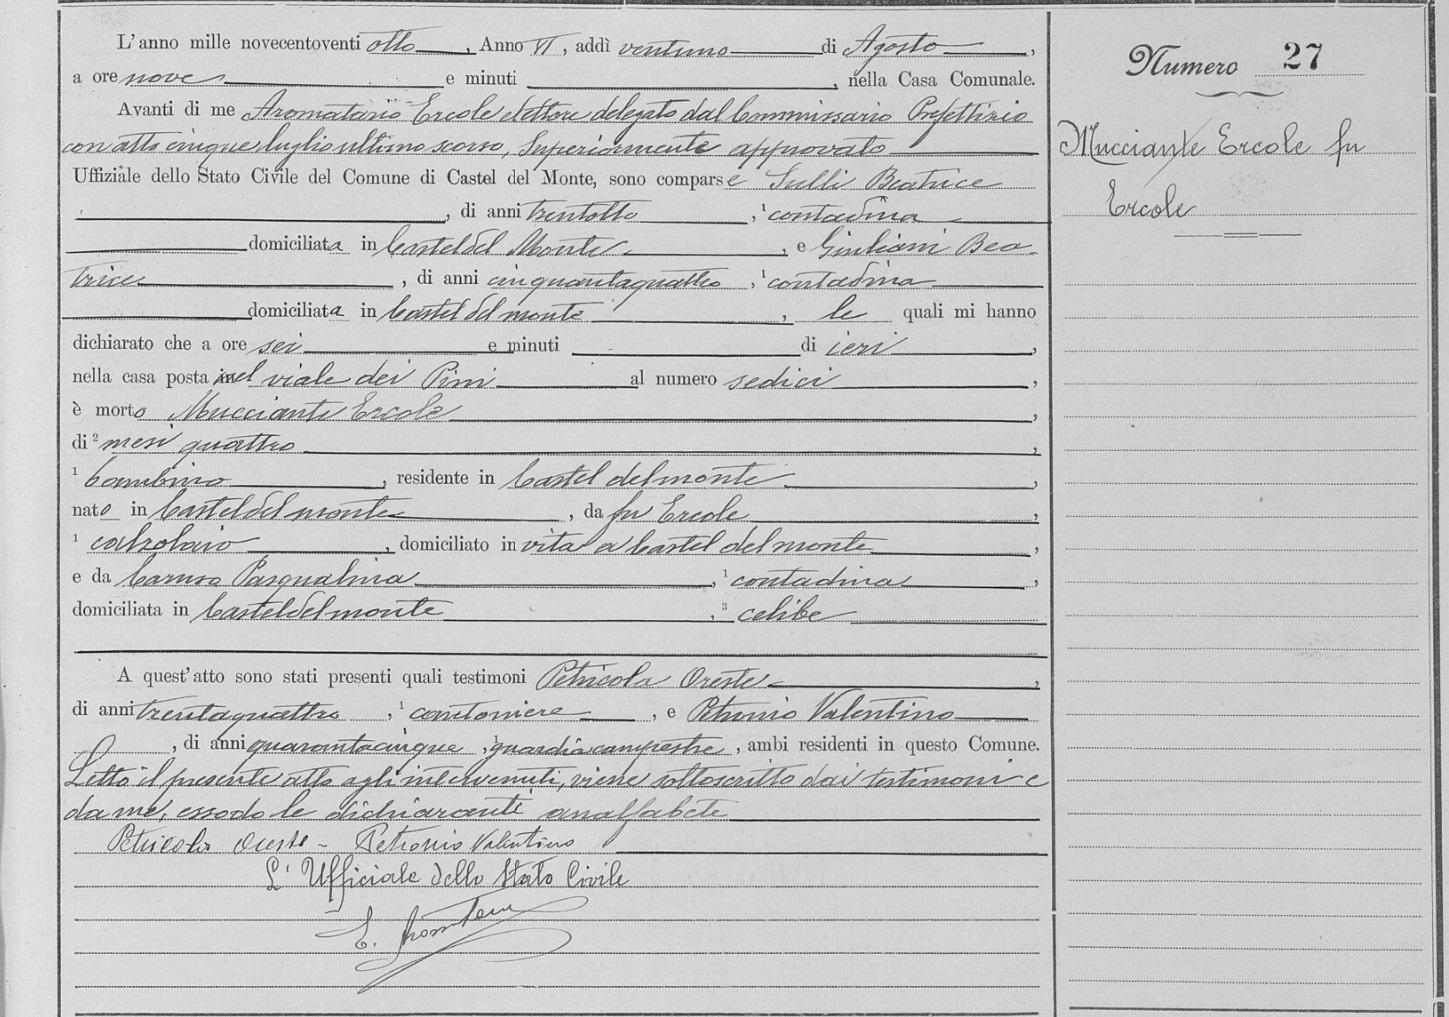 L'anno mille novecentoventi otto, Anno VI, addì ventuno di Agosto,
a ore nove e minuti , nella Casa Comunale.
Avanti di me Aromatario Ercole elettore delegato dal Commissario Prefettizio
con atto cinque luglio ultimo scorso, Superiormente approvato
Uffiziale dello Stato Civile del Comune di Castel del Monte, sono comparse Sulli Beatrice
, di anni trentotto, ¹ contadina
domiciliata in Castel del Monte, e Giuliani Bea-
trice, di anni cinquantaquattro, ¹ contadina
domiciliata in Castel del monte, le quali mi hanno
dichiarato che a ore sei e minuti di ieri,
nella casa posta nel viale dei Pini al numero sedici,
è morto Mucciante Ercole,
di ² mesi quattro,
¹ bambino, residente in Castel del monte,
nato in Castel del monte, da fu Ercole,
¹ calzolaio, domiciliato in vita a Castel del monte,
e da Caruso Pasqualina, ¹ contadina,
domiciliata in Castel del monte, ³ celibe
A quest'atto sono stati presenti quali testimoni Petricola Oreste,
di anni trentaquattro, ¹ cantoniere, e Petronio Valentino
, di anni quarantacinque, ¹ guardia campestre, ambi residenti in questo Comune.
Letto il presente atto agli intervenuti, viene sottoscritto dai testimoni e
da me, essedo le dichiaranti analfabete
Petricola Oreste - Petronio Valentino
L' Ufficiale dello Stato Civile
E. Aromatari
Numero 27
Mucciante Ercole fu
Ercole